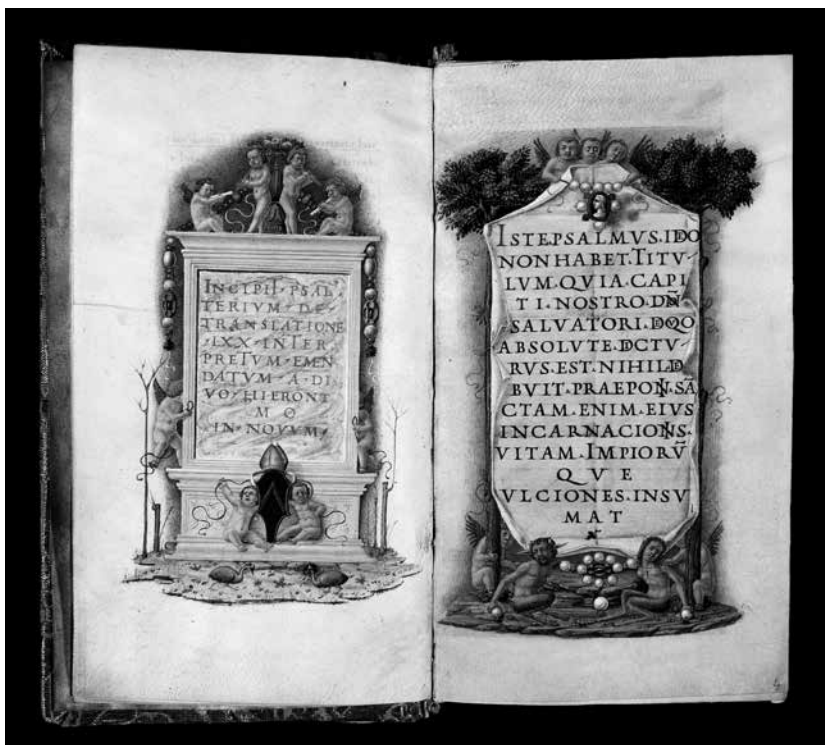 INCIPIT · PSAL
TERIVM · DE
TRANSLATIONE
· LXX · INTER
PRETVM · EMEN
DATVM · A · DI
VO · HIERONI
M O
IN · NOVVM ·
ISTE.PSALMVS.IDEO
NON HABET.TITV-
LVM.QVIA.CAPI
TI.NOSTRO.DÑ
SALVATORI.DEQO
ABSOLVTE.DCTV-
RVS.EST.NIHIL.DE
BVIT.PRAEPONI.SĀ
CTAM.ENIM.EIVS
INCARNACIONIS.
VITAM.IMPIORV̄
Q V E
VLCIONES.INSV
MAT